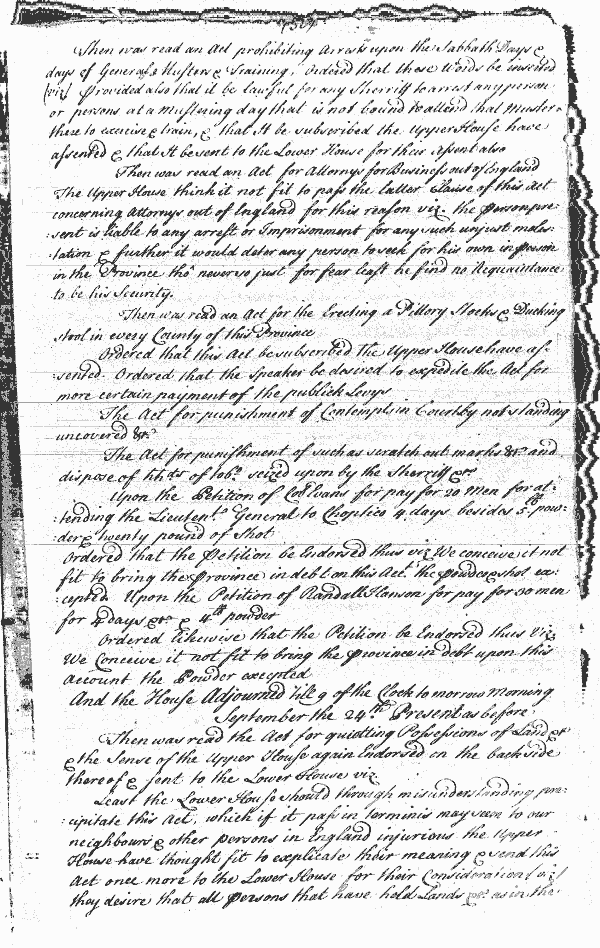 Then was read an Act prohibiting Arrests upon the Sabbath Days &
days of Generall Musters & Training. Ordered that these Words be inserted
(viz) Provided also that it be lawful for any Sherriff to arrest any person
or persons at a Mustering day that is not bound to attend that Muster
there to exercise & train, & that It be subscribed the Upper House have
assented & that It be sent to the Lower House for their Assent also
Then was read an Act for Attornys for Business out of England
The Upper House think it not fit to pass the latter Clause of this Act
concerning Attornys out of England for this reason viz. the person pre-
sent is liable to any arrest or Imprisonment for any such unjust moles-
:tation & further it would deter any person to seek for his own in person
in the Province tho' never so just for fear least he find no Acquaintance
to be his Security.
Then was read an Act for the Erecting a Pillory Stocks & Ducking
stool in every County of this Province
Ordered that this Act be subscribed the Upper House have as-
:sented. Ordered that the Speaker be desired to expedite the Act for
more certain payment of the publick Levys
The Act for punishment of Contempts in Court by not standing
uncovered &c.
The Act for punishment of such as scratch out marks &c and
dispose of hhds of tobo. seized upon by the Sherriff &c.
Upon the Petition of Coll Evans for pay for 20 Men for at-
:tending the Lieutent. General to Choptico 4 days besides 5lb pow-
der & twenty pound of Shot
Ordered that the Petition be Endorsed thus viz We conceive it not
fit to bring the Province in debt on this Act. the powder & shot ex-
:cepted. Upon the Petition of Randall Hanson for pay for 30 men
for 4 days &c. & 4lb powder
Ordered likewise that the Petition be Endorsed thus Viz.
We Conceive it not fit to bring the Province in debt upon this
account the Powder excepted
And the House Adjourned till 9 of the Clock to morrow morning
September the 24th. Present as before
Then was read the Act for quidting Possessions of Land &c
& the Sense of the Upper House again Endorsed on the backside
thereof & sent to the Lower House viz
Least the Lower House should through misunderstanding pre-
:cipitate this Act, which if it pass in terminis may seem to our
neighbours & other persons in England injurious the Upper
House have thought fit to explicate their meaning & send this
Act once more to the Lower House for their Consideration (viz)
they desire that all Persons that have held Lands &c. as in the